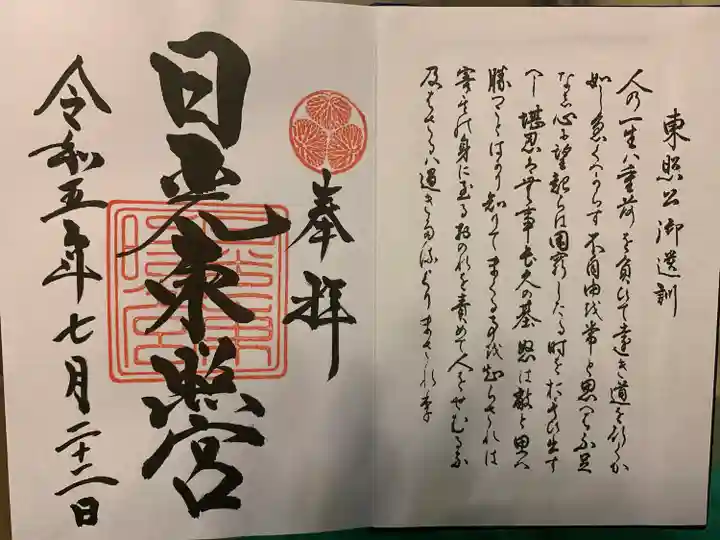 東照公御遺訓
人の一生ハ重荷を負ひて遠き道を行くか
如し急くへからす 不自由を常と思へは不足
なし心に望起らは困窮したる時を おもひ出す
へし 堪忍は無事長久の基 怒は敵と思へ
勝つことはかり知りて まくる事を知らされは
害其の身に至る おのれを責めて人をせむるな
及はさるハ過きたるよりまされり
奉拝
日光東照宮
令和五年七月二十二日